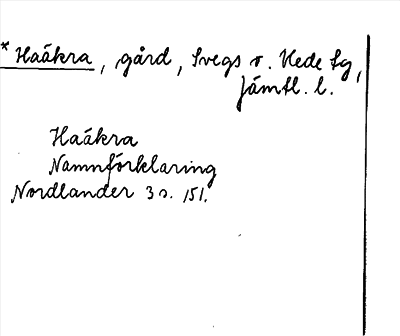 * Haåkra, gård, Svegs o. Hede tg,
Jämtl. l.
Haåkra
Namnförklaring
Nordlander 3 s. 151.